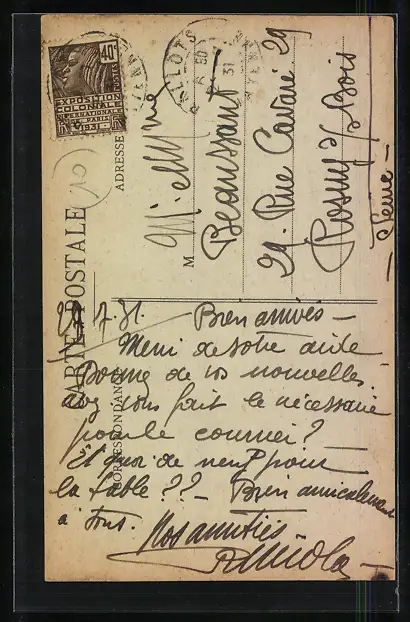 40c
POSTES
EXPOSITION
COLONIALE
INTERNATIONALE
PARIS
1931
31
CARTE POSTALE
ADRESSE
CORRESPONDANCE
M
Beaussant
29 Rue Cavaré 29
Rosny s/ Bois
- Seine -
7. 31. Bien arrivés -
Merci de votre aide
Donnez de vos nouvelles.
avez vous fait le nécessaire
pour le courrier ?
Et quoi de neuf pour
la table ?? - Bien amicalement
à tous. Nos amitiés